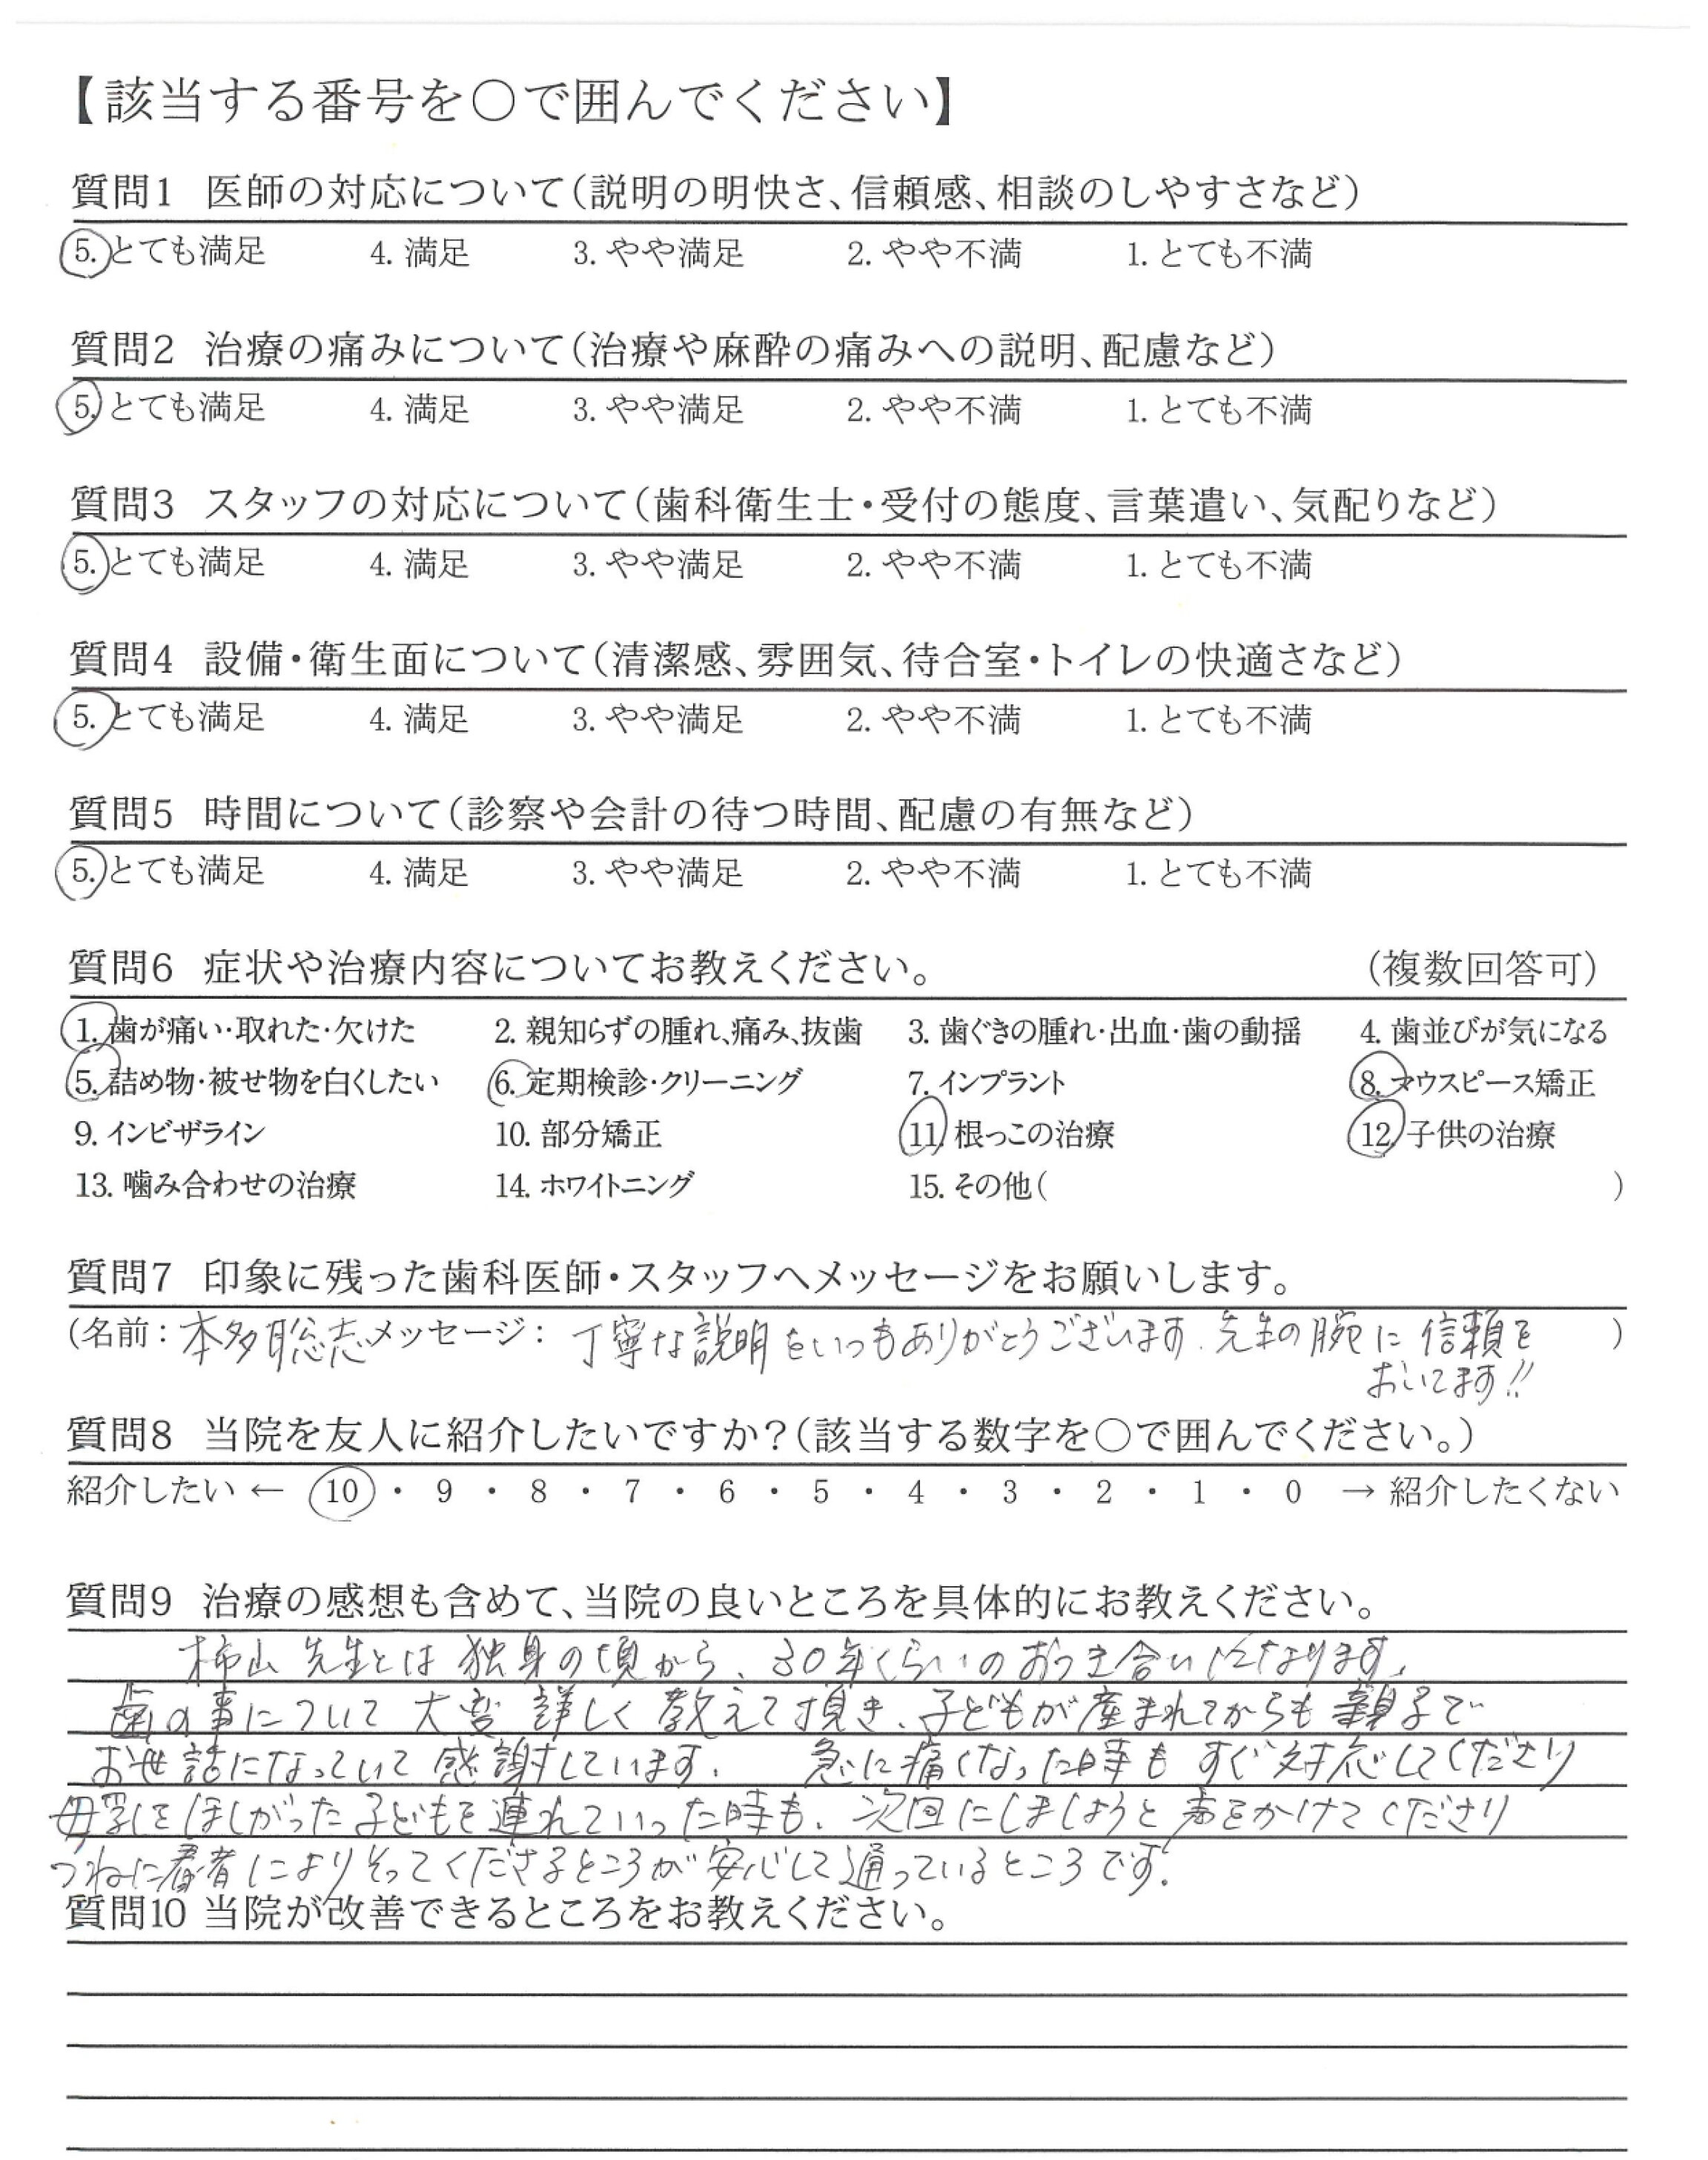 【該当する番号を○で囲んでください】
質問1 医師の対応について(説明の明快さ、信頼感、相談のしやすさなど)
5. とても満足 4. 満足 3. やや満足 2. やや不満 1. とても不満
質問2 治療の痛みについて(治療や麻酔の痛みへの説明、配慮など)
5. とても満足 4. 満足 3. やや満足 2. やや不満 1. とても不満
質問3 スタッフの対応について(歯科衛生士・受付の態度、言葉遣い、気配りなど)
5. とても満足 4. 満足 3. やや満足 2. やや不満 1. とても不満
質問4 設備・衛生面について(清潔感、雰囲気、待合室・トイレの快適さなど)
5. とても満足 4. 満足 3. やや満足 2. やや不満 1. とても不満
質問5 時間について(診察や会計の待つ時間、配慮の有無など)
5. とても満足 4. 満足 3. やや満足 2. やや不満 1. とても不満
質問6 症状や治療内容についてお教えください。 (複数回答可)
1. 歯が痛い・取れた・欠けた 2. 親知らずの腫れ、痛み、抜歯 3. 歯ぐきの腫れ・出血・歯の動揺 4. 歯並びが気になる
5. 詰め物・被せ物を白くしたい 6. 定期検診・クリーニング 7. インプラント 8. マウスピース矯正
9. インビザライン 10. 部分矯正 11. 根っこの治療 12. 子供の治療
13. 噛み合わせの治療 14. ホワイトニング 15. その他( )
質問7 印象に残った歯科医師・スタッフへメッセージをお願いします。
(名前：本多聡志 メッセージ：丁寧な説明をいつもありがとうございます. 先生の腕に信頼を )
おいてます!!
質問8 当院を友人に紹介したいですか？(該当する数字を○で囲んでください。)
紹介したい ← 10 ・ 9 ・ 8 ・ 7 ・ 6 ・ 5 ・ 4 ・ 3 ・ 2 ・ 1 ・ 0 → 紹介したくない
質問9 治療の感想も含めて、当院の良いところを具体的にお教えください。
柿山先生とは独身の頃から、30年くらいのおつき合いになります。
歯の事について大変詳しく教えて頂き、子どもが産まれてからも親子で
お世話になっていて感謝しています. 急に痛くなった時もすぐ対応してくださり
母乳をほしがった子どもを連れていった時も、次回にしましょうと声をかけてくださり
つねに患者によりそってくださるところが安心して通っているところです.
質問10 当院が改善できるところをお教えください。